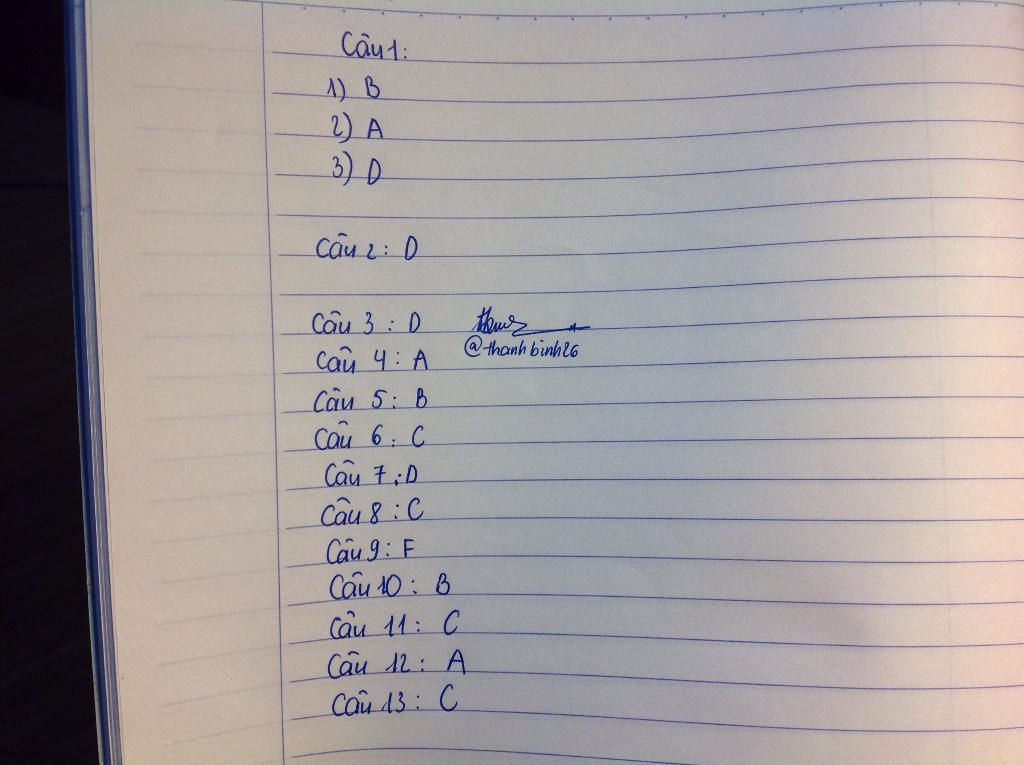 Câu 1:
1) B
2) A
3) D
Câu 2: D
Câu 3: D
@thanhbinh26
Câu 4: A
Câu 5: B
Câu 6: C
Câu 7: D
Câu 8: C
Câu 9: F
Câu 10: B
Câu 11: C
Câu 12: A
Câu 13: C